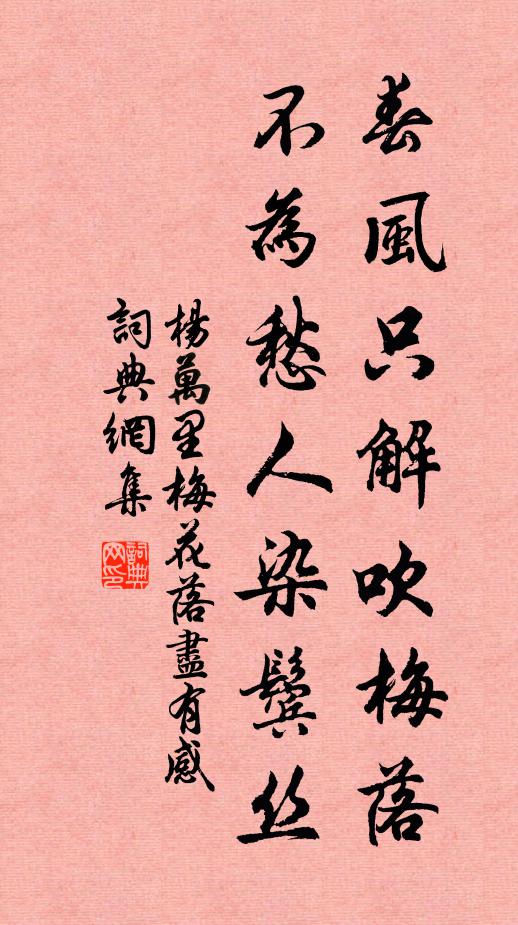 春風只解吹梅落
不為愁人染鬢丝
楊萬里梅花落盡有感
詞典網集
詞典
网印